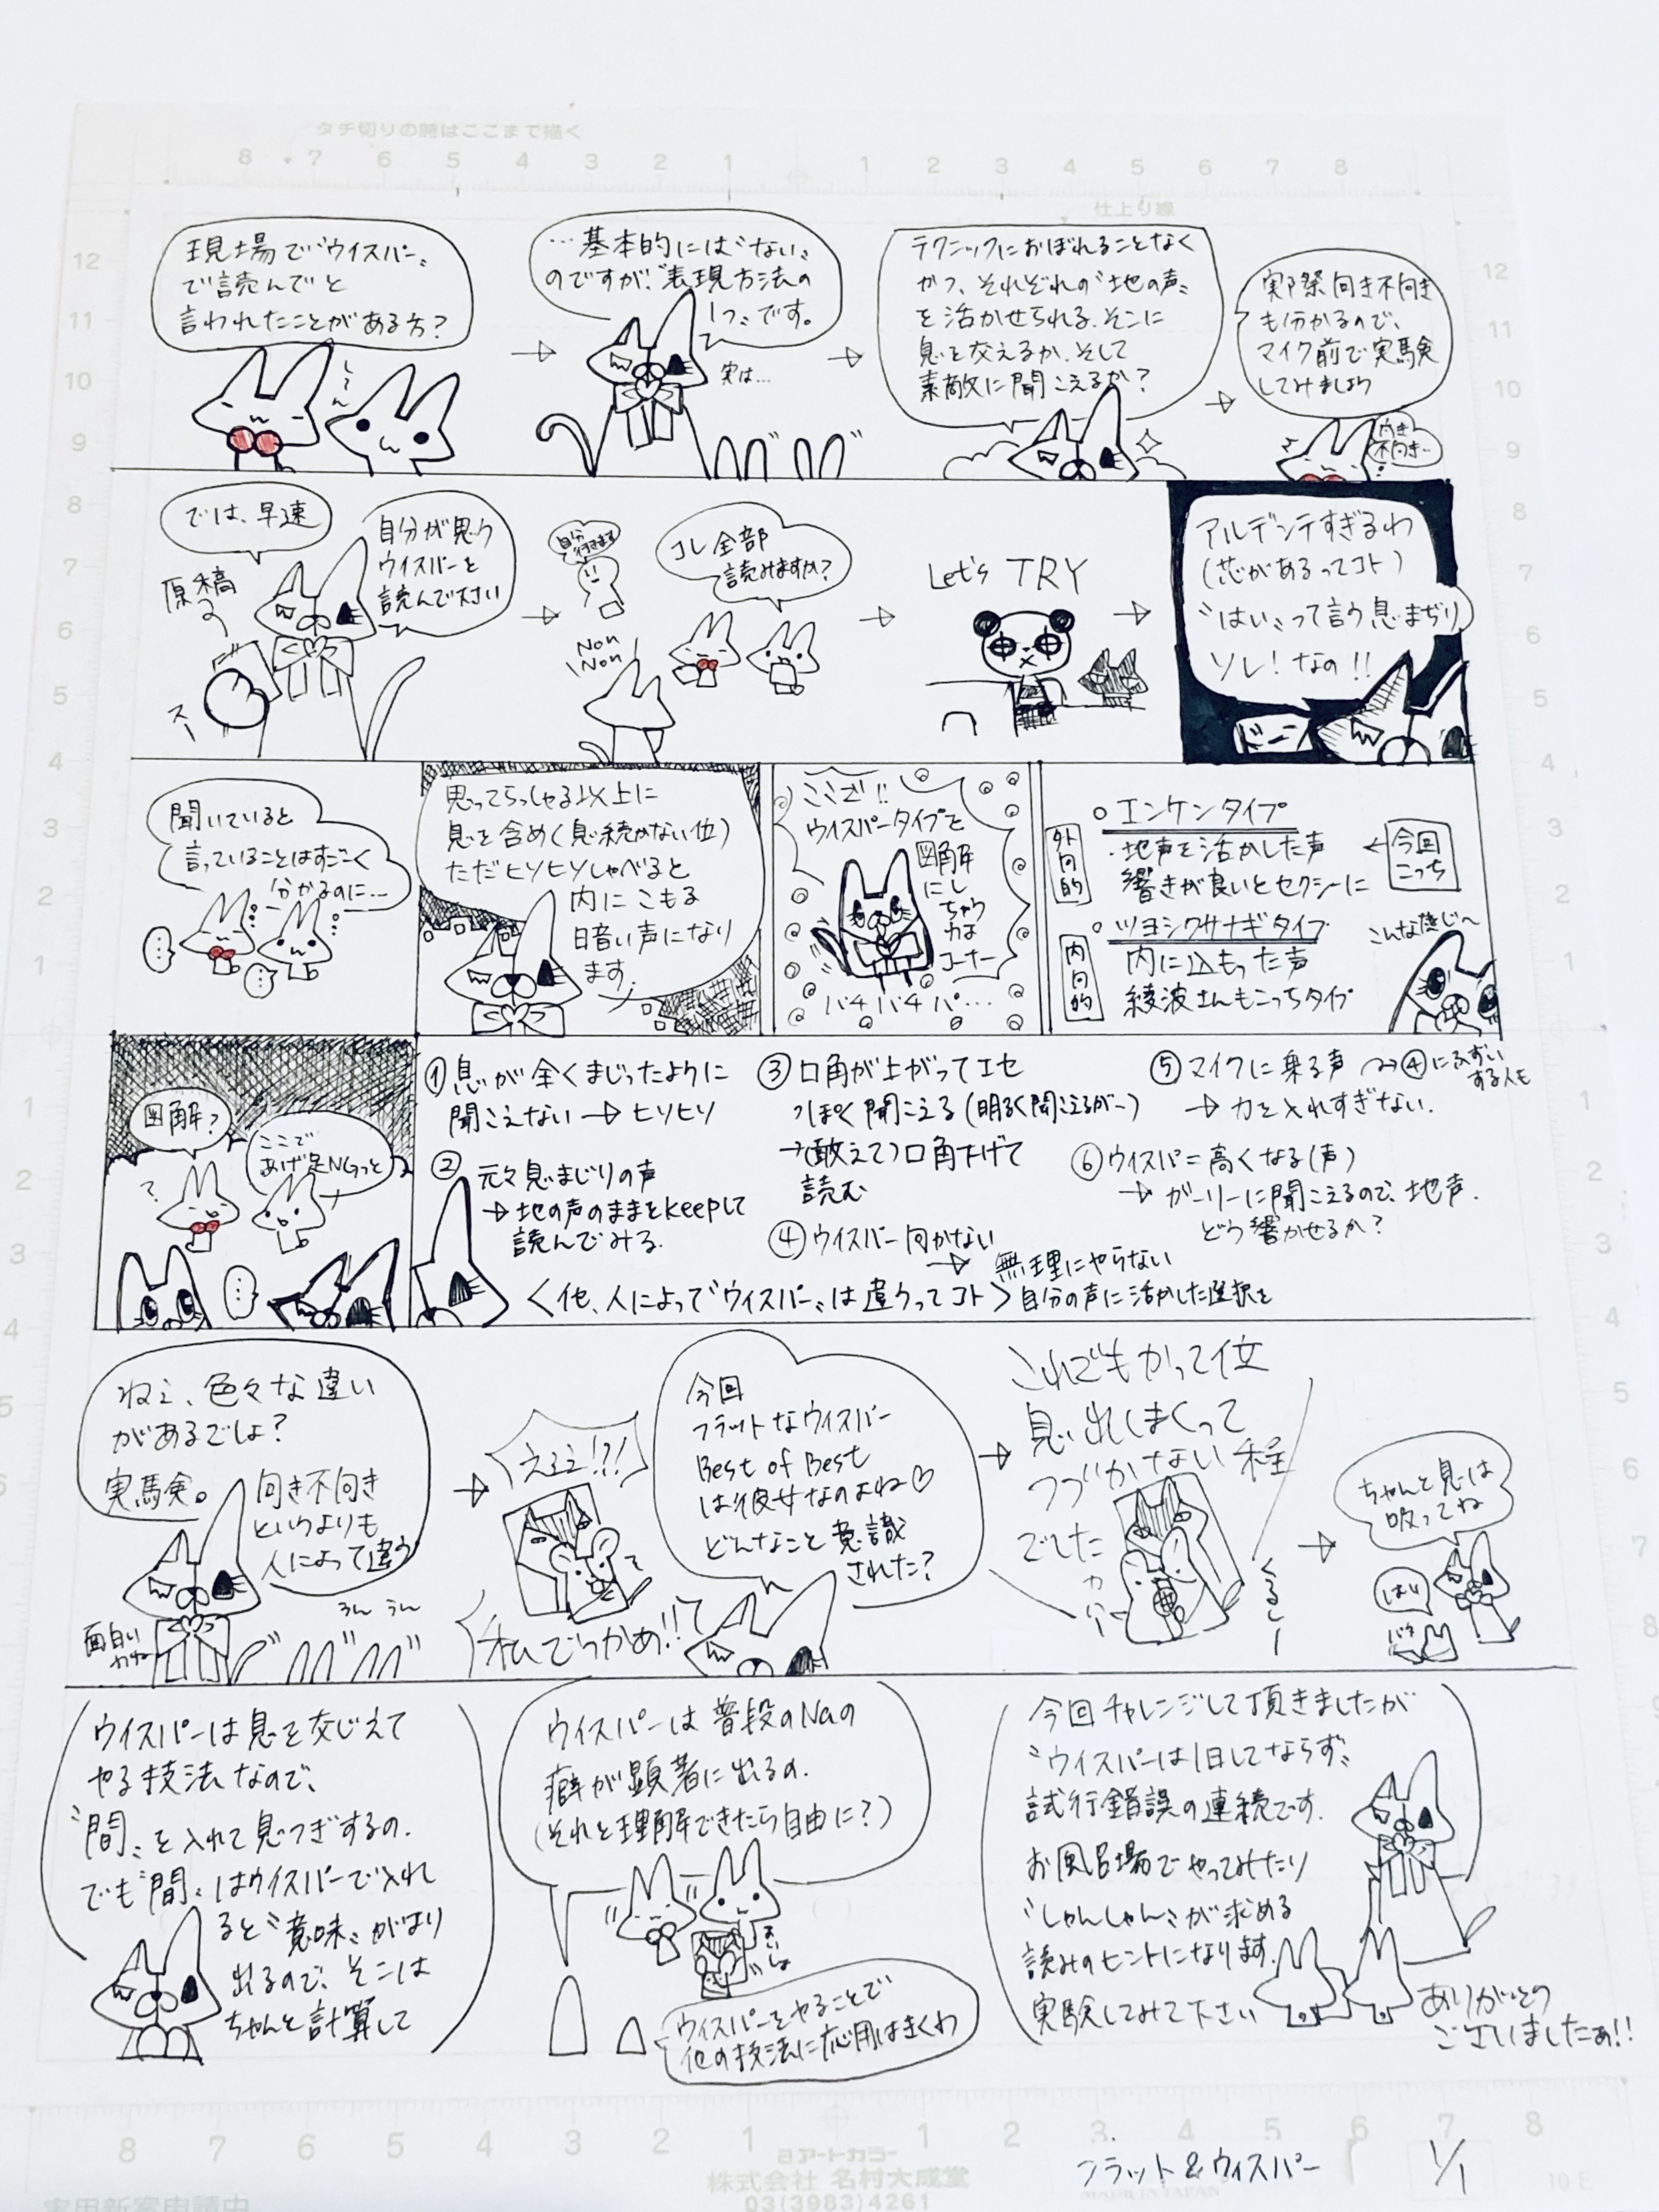 タチ切りの時はここまで描く
8 7 6 5 4 3 2 1 1 2 3 4 5 6 7 8
仕上り線
現場で〝ウイスパー〟
で読んでと
言われたことがある方?
してん
…基本的には〝ない〟
のですが、〝表現方法の
1つ〟です。
実は…
テクニックにおぼれることなく
かつ、それぞれの〝地の声〟
を活かせられる、そこに
息を交えるか、そして
素敵に聞こえるか?
実際向き不向き
も分かるので、
マイク前で実験
してみましょう
向き
不向き…
では、早速
原稿
スー
自分が思う
ウイスパーを
読んで下さい
自分
行きます
Non
Non
コレ全部
読みますか?
Let's TRY
アルデンテすぎるわ
(芯があるってコト)
〝はい〟って言う息まぢり
ソレ!なの!!
ドーン
聞いていると
言っていることはすごーく
分かるのに…
思ってらっしゃる以上に
息を含め(息続かない位)
ただヒソヒソしゃべると
内にこもる
暗い声になり
ます。
ここで!!
ウイスパータイプを
図解
にし
ちゃう
わよ
コーナー
パチパチパ…
○エンケンタイプ
外向的
・地声を活かした声
響きが良いとセクシーに
今回
こっち
○ツヨシクサナギタイプ
内向的
内に込もった声
綾波さんもこっちタイプ
こんな感じ〜
図解?
ここで
あげ足NGっと
?
①息が全くまじったように
聞こえない→ヒソヒソ
②元々息まじりの声
→地の声のままをkeepして
読んでみる。
③口角が上がってエセ
っぽく聞こえる(明るく聞こえるがー)
→(敢えて)口角下げて
読む
④ウイスパー向かない
→無理にやらない
自分の声に活かした選択を
⑤マイクに乗る声 ④に
する人も
→力を入れすぎない。
⑥ウイスパー=高くなる(声)
→ガーリーに聞こえるので、地声。
どう響かせるか?
<他、人によって〝ウイスパー〟は違うってコト>
ねぇ、色々な違い
があるでしょ?
実験。向き不向き
というよりも
人によって違う
面白い
わね
うん うん
えぇえ!?!
私でつかめ!!
今回
フラットなウイスパー
Best of Best
は彼女なのよね♡
どんなこと意識
された?
これでもかって位
息、出しまくって
つづかない程
でしたカハー
くるしー
ちゃんと息は
吸ってね
はい
バタ
ウイスパーは息を交じえて
やる技法なので、
〝間〟を入れて息つぎするの。
でも〝間〟はウイスパーで入れ
ると〝意味〟がはり
出るので、そこは
ちゃんと計算して
ウイスパーは普段のNaの
癖が顕著に出るの。
(それを理解できたら自由に?)
ウイスパーをやることで
他の技法に応用はきくわ
今回チャレンジして頂きましたが
〝ウイスパーは1日してならず〟
試行錯誤の連続です。
お風呂場でやってみたり
〝しゃんしゃん〟が求める
読みのヒントになります。
実験してみて下さい
ありがとう
ございましたぁ!!
8 7 6 5 4 3 2 1 1 2 3 4 5 6 7 8
アートカラー
株式会社 名村大成堂
03(3983)4261
実用新案申請中
フラット&ウィスパー 1/1